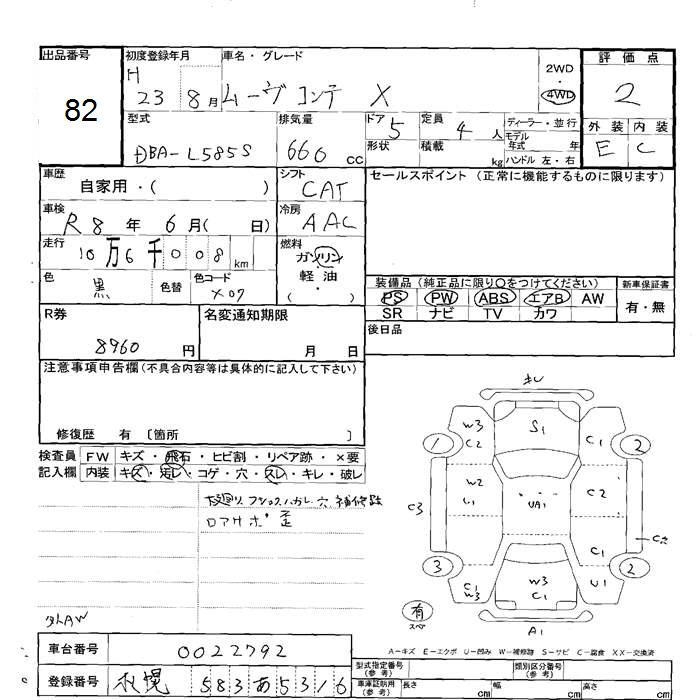 出品番号 82
初度登録年月 H 23 8月
車名・グレード ムーヴ コンテ X
2WD・4WD
評価点 2
型式 DBA-L585S
排気量 660 cc
ドア 5 形状
定員 4 人 積載 kg
ディーラー・並行
モデル年式 年
ハンドル 左・右
外装 E 内装 C
車歴 自家用・( )
シフト CAT
セールスポイント (正常に機能するものに限ります)
車検 R8年 6月( 日)
冷房 AAC
走行 10万6千008km
燃料 ガソリン・軽油・( )
色 黒 色替
色コード X07
装備品 (純正品に限り○をつけてください)
PS PW ABS エアB AW
SR ナビ TV カワ
新車保証書 有・無
R券 8960円
名変通知期限 月 日
後日品
注意事項申告欄(不具合内容等は具体的に記入して下さい)
修復歴 有 〔箇所 〕
検査員記入欄
FW キズ・飛石・ヒビ割・リペア跡・×要
内装 キズ・汚レ・コゲ・穴・スレ・キレ・破レ
下廻り フロアサビ
ロアサポ 歪
キレ
W3 C2 S1 C1
1 2
W2 UA1 C2
C3
C1 C2
3 2
C1 W3 W3 C1 U1
有 スペア A1
A-キズ E-エクボ U-凹み W-補修跡 S-サビ C-腐食 XX-交換済
車台番号 0022792
登録番号 札幌 583 あ 5316
型式指定番号(参考) 類別区分番号(参考)
車庫証明用(参考) 長さ cm 幅 cm 高さ cm